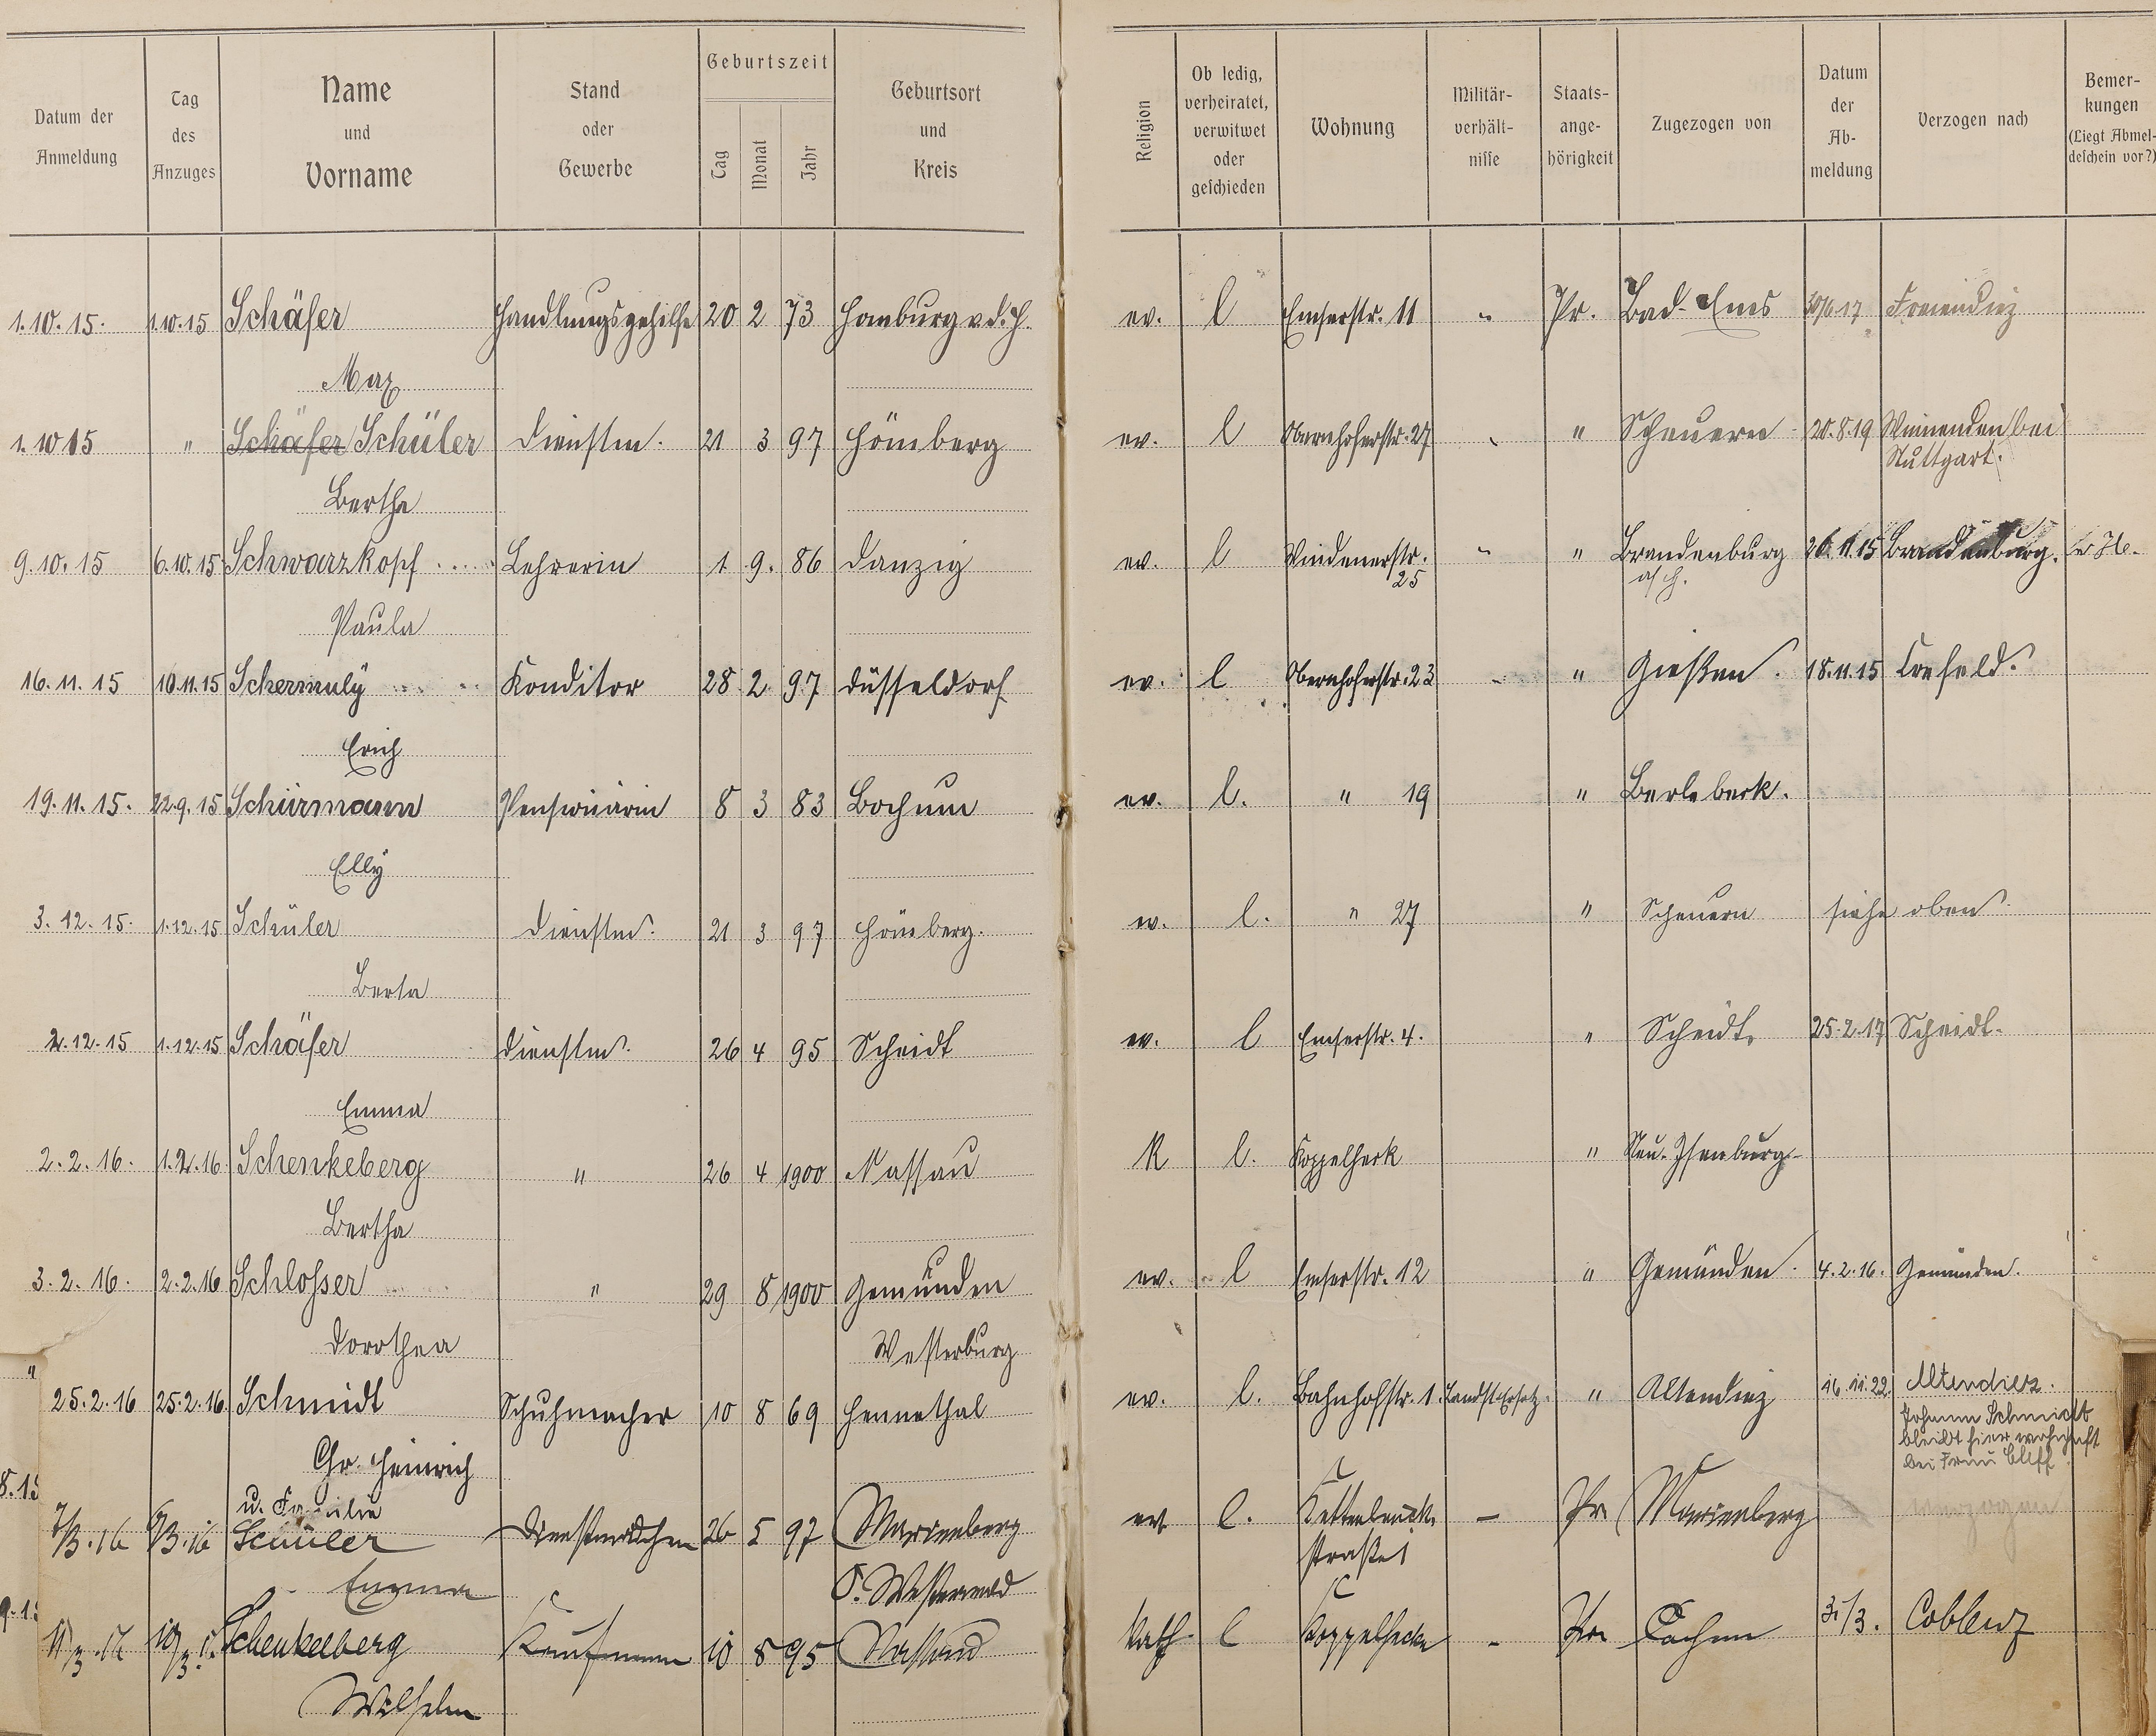 Datum der Anmeldung
Tag des Anzuges
Name und Vorname
Stand oder Gewerbe
Geburtszeit
Tag Monat Jahr
Geburtsort und Kreis
Religion
Ob ledig, verheiratet, verwitwet oder geschieden
Wohnung
Militär-verhält-nisse
Staats-ange-hörigkeit
Zugezogen von
Datum der Ab-meldung
Verzogen nach
Bemer-kungen
(Liegt Abmel-deschein vor?)
1.10.15. 1.10.15 Schäfer Handlungsgehilfe 20 2 73 Homburg v.d.H. ev. l Emserstr. 11 " Pr. Bad-Ems 30/6.17 Freiendiez
Max
1.10 15 " Schäfer Schüler Dienstm. 21 3 97 Hömberg ev. l Obernhoferstr. 27 " Scheuern 20.8.19 Winnenden bei
Stuttgart.
Berthe
9.10.15 6.10.15 Schwarzkopf Lehrerin 1 9. 86 Danzig ev. l Windenerstr. " " Brandenburg 26.11.15 Brandenburg.
25 a/H.
Paula
16.11.15 16.11.15 Schermuly Konditor 28 2 97 Düsseldorf ev. l Obernhoferstr. 23 " Gießen. 18.11.15 Crefeld.
Erich
19.11.15. 22.9.15 Schürmann Pensionärin 8 3 83 Bochum ev. l. " 19 " Berlebeck.
Elly
3.12.15. 1.12.15 Schüler Dienstm. 21 3 97 Hömberg. ev. l. " 27 " Scheuern siehe oben
Berta
2.12.15 1.12.15 Schäfer Dienstm. 26 4 95 Scheidt ev. l Emserstr. 4. " Scheidt. 25.2.17 Scheidt.
Emma
2.2.16. 1.2.16 Schenkeberg " 26 4 1900 Nassau K l. Koppelheck " Neu-Isenburg
Bertha
3.2.16. 2.2.16 Schlosser " 29 8 1900 Gemünden ev. l Emserstr. 12 " Gemünden. 4.2.16. Gemünden.
Dorothea Westerburg
25.2.16 25.2.16. Schmidt Schuhmacher 10 8 69 Hennethal ev. l. Bahnhofstr. 1. Landst. Ersatz. " Altendiez 16.11.22. Altendiez.
Johann Schmidt
bleibt hier wohnhaft
bei Frau
Chr. Heinrich
u. Familie
7/3.16 6/3.16 Schüler Dienstmädchen 26 5 97 Marienberg ev l. Kettenbrück- – Pr. Marienberg
straße 1
Emma O. Westerwald
11/3.16 10/3.16 Schenkelberg Kaufmann 10 8 95 Nassau Kath. l Koppelhecke - Pr. Cochem 31/3. Coblenz
Wilhelm